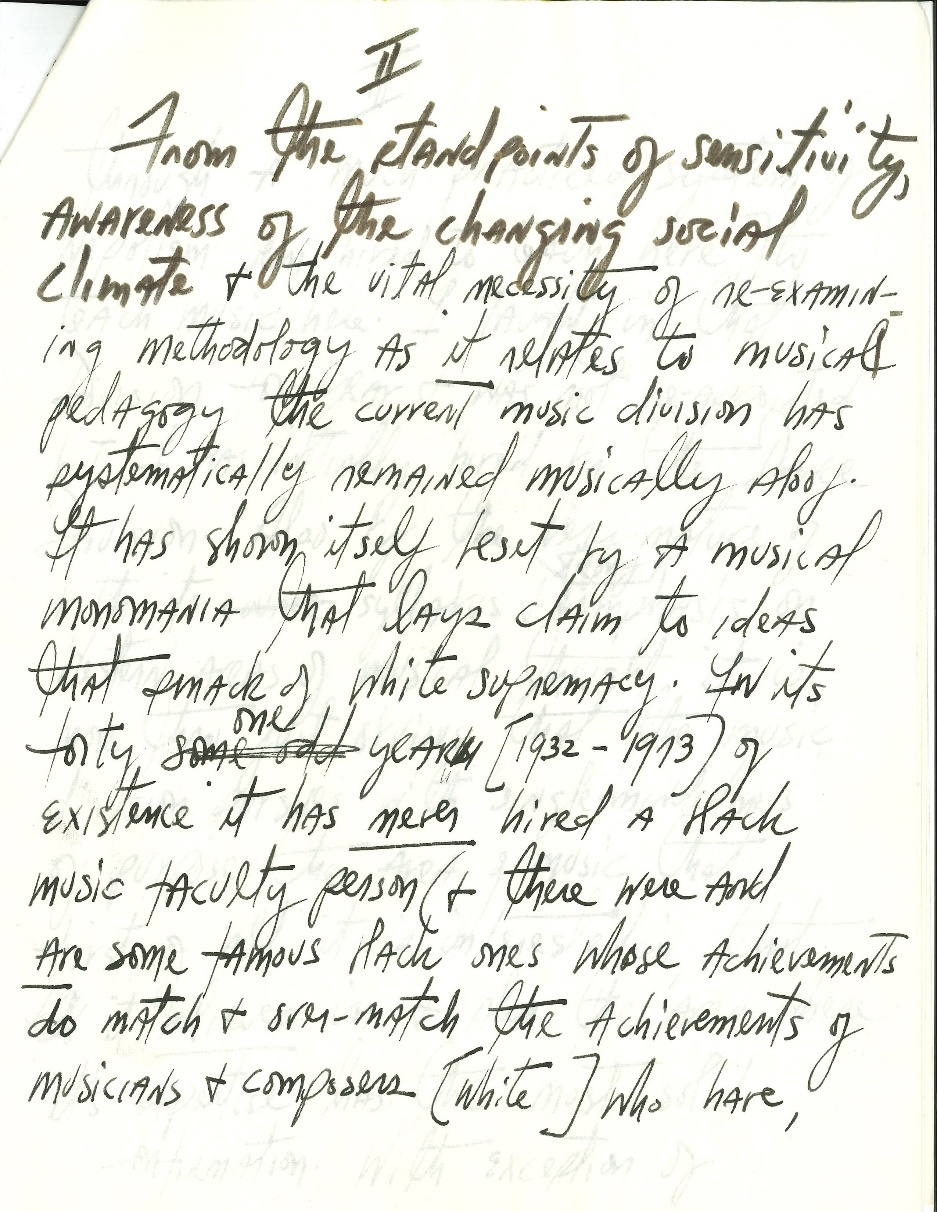 II
From the standpoints of sensitivity,
awareness of the changing social
climate & the vital necessity of re-examin-
ing methodology as it relates to musical
pedagogy the current music division has
systematically remained musically aloof.
It has shown itself beset by a musical
monomania that lays claim to ideas
that smack of white supremacy. In its
one
forty some odd years [1932 - 1973] of
existence it has never hired a Black
music faculty person (& there were and
are some famous Black ones whose achievements
do match & over-match the achievements of
musicians & composers [white] who have,